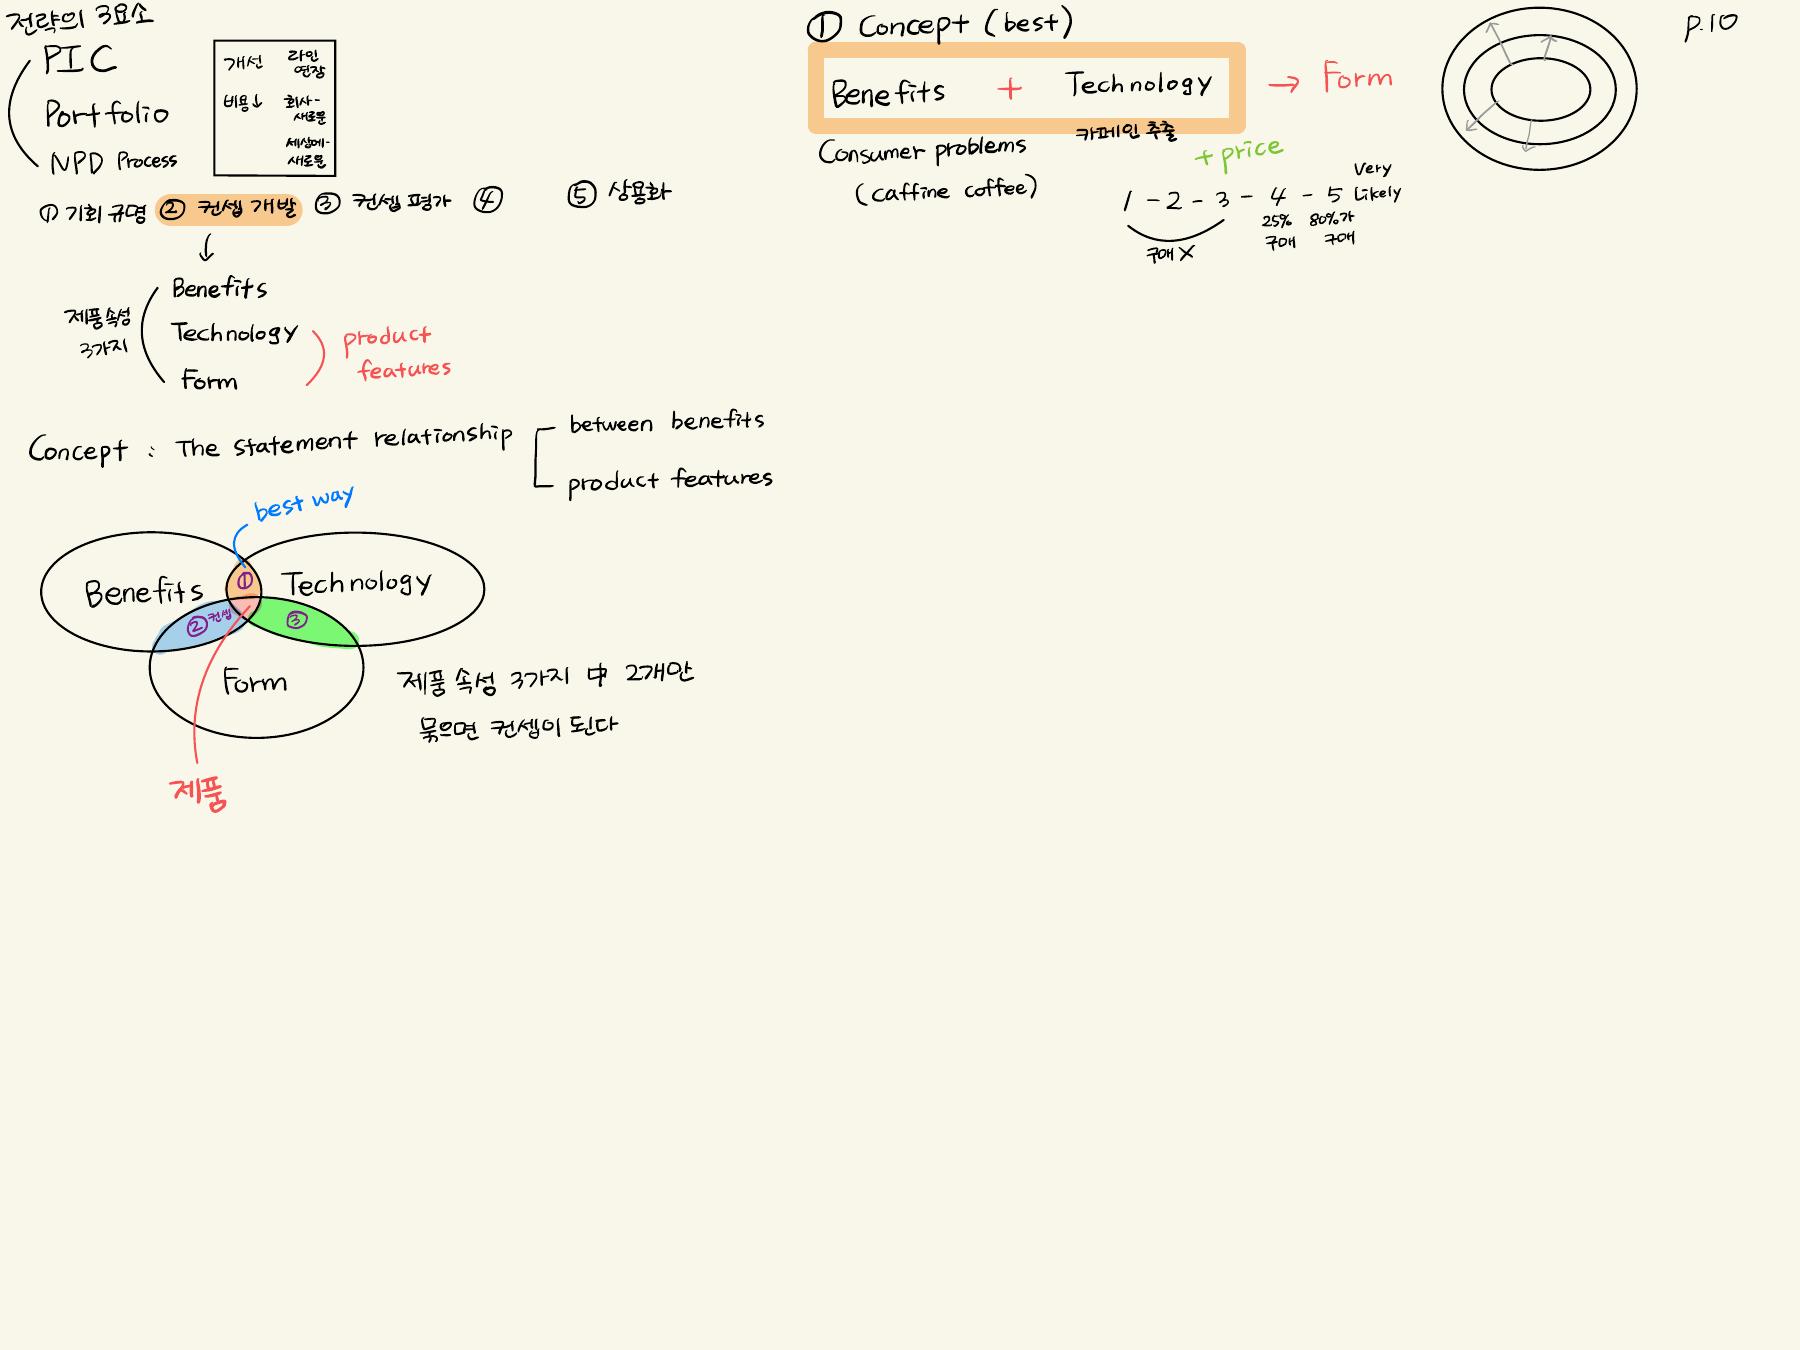 전략의 3요소
PIC
Portfolio
NPD Process
개선 라인 연장
비용↓ 회사-새로움
세상에-새로움
① 기회 규명 ② 컨셉 개발 ③ 컨셉 평가 ④ ⑤ 상용화
↓
제품속성 3가지
Benefits
Technology
Form
product features
Concept : The statement relationship
between benefits
product features
best way
Benefits
Technology
①
② 컨셉
③
Form
제품
제품 속성 3가지 中 2개만
묶으면 컨셉이 된다
① Concept (best)
Benefits + Technology → Form
카페인 추출
Consumer problems
(caffine coffee)
+ price
1 - 2 - 3 - 4 - 5 Very Likely
구매 X
25% 구매
80%가 구매
p.10